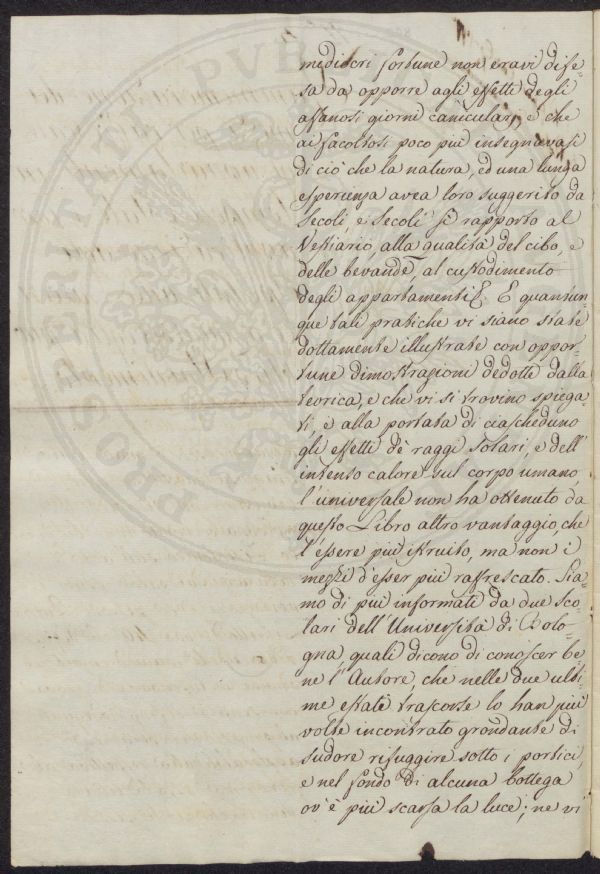 mediocri fortune non eravi dife=
sa da opporre agli effetti degli
affanosi giorni canicularj, e che
ai facoltosi poco più insegnavasi
di ciò che la natura, ed una lunga
esperienza avea loro suggerito da
secoli, e secoli per rapporto al
Vestiario, alla qualità del cibo, e
delle bevande, al custodimento
degli appartamenti &. E quantun=
que tali pratiche vi siano state
dottamente illustrate con oppor=
tune dimostrazioni dedotte dalla
teorica, e che vi si trovino spiega=
ti, e alla portata di ciascheduno
gli effetti dè raggi solari, e dell'
intenso calore sul corpo umano,
l'universale non ha ottenuto da
questo Libro altro vantaggio, che
l'èssere più istruito, ma non i
mezzi d'èsser più raffrescato. Sia=
mo di più informati da due sco=
lari dell'Università di Bolo=
gna, quali dicono di conoscer be=
ne l'Autore, che nelle due ulti=
me estati trascorse lo han più
volte incontrato grondante di
sudore rifuggire sotto i portici,
e nel fondo di alcuna bottega
ov'è più scarsa la luce; ne vi
PVBLI
PROSPERITATI